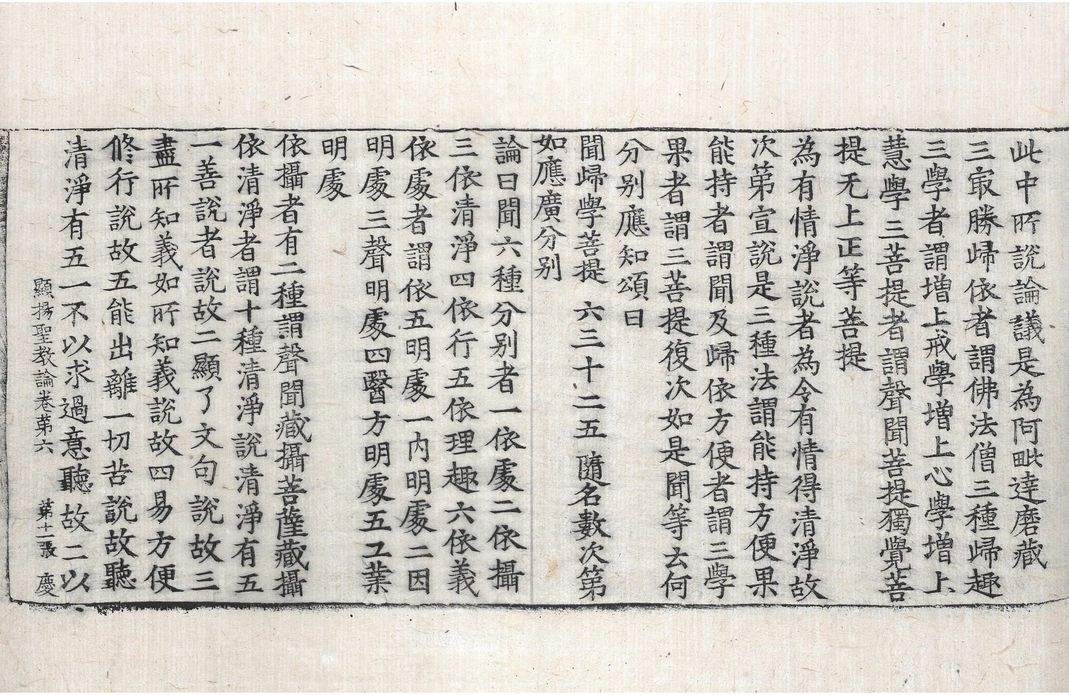 此中所說論議是為阿毗達磨藏
三㝡勝歸依者謂佛法僧三種歸趣
三學者謂增上戒學增上心學增上
慧學三菩提者謂聲聞菩提獨覺菩
提无上正等菩提
為有情淨說者為令有情得清淨故
次第宣說是三種法謂能持方便果
能持者謂聞及歸依方便者謂三學
果者謂三菩提復次如是聞等云何
分别應知頌曰
聞歸學菩提　六三十二五　隨名數次第
如應廣分别
論曰聞六種分别者一依處二依攝
三依清淨四依行五依理趣六依義
依處者謂依五明處一內明處二因
明處三聲明處四醫方明處五工業
明處
依攝者有二種謂聲聞藏攝菩薩藏攝
依清淨者謂十種清淨說清淨有五
一善說者說故二顯了文句說故三
盡所知義如所知義說故四易方便
修行說故五能出離一切苦說故聽
清淨有五一不以求過意聽故二以
顯揚聖教論卷第六　第十二張　慶